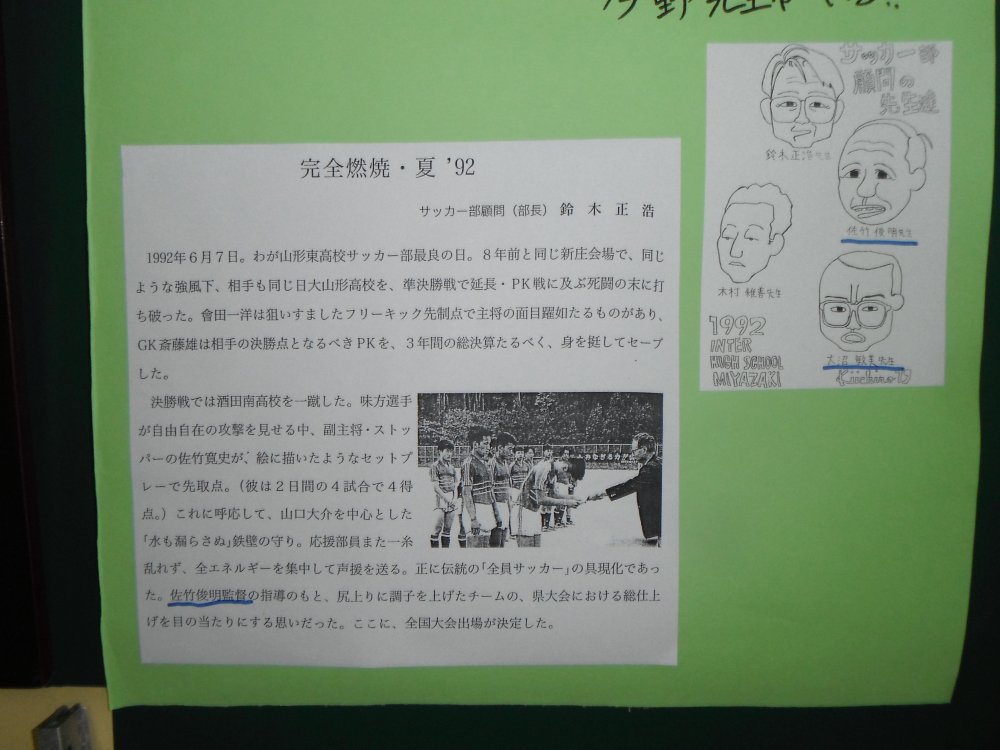 サッカー部
顧問の
先生達
鈴木正浩先生
佐竹俊明先生
木村
先生
大沼敏美先生
1992
INTER
HIGH SCHOOL
MIYAZAKI
完全燃焼・夏 ’92
サッカー部顧問（部長） 鈴 木 正 浩
1992年６月７日。わが山形東高校サッカー部最良の日。８年前と同じ新庄会場で、同じ
ような強風下、相手も同じ日大山形高校を、準決勝戦で延長・PK戦に及ぶ死闘の末に打
ち破った。會田一洋は狙いすましたフリーキック先制点で主将の面目躍如たるものがあり、
GK斎藤雄は相手の決勝点となるべきPKを、３年間の総決算たるべく、身を挺してセーブ
した。
決勝戦では酒田南高校を一蹴した。味方選手
が自由自在の攻撃を見せる中、副主将・ストッ
パーの佐竹寛史が、絵に描いたようなセットプ
レーで先取点。（彼は２日間の４試合で４得
点。）これに呼応して、山口大介を中心とした
「水も漏らさぬ」鉄壁の守り。応援部員また一糸
乱れず、全エネルギーを集中して声援を送る。正に伝統の「全員サッカー」の具現化であっ
た。佐竹俊明監督の指導のもと、尻上りに調子を上げたチームの、県大会における総仕上
げを目の当たりにする思いだった。ここに、全国大会出場が決定した。